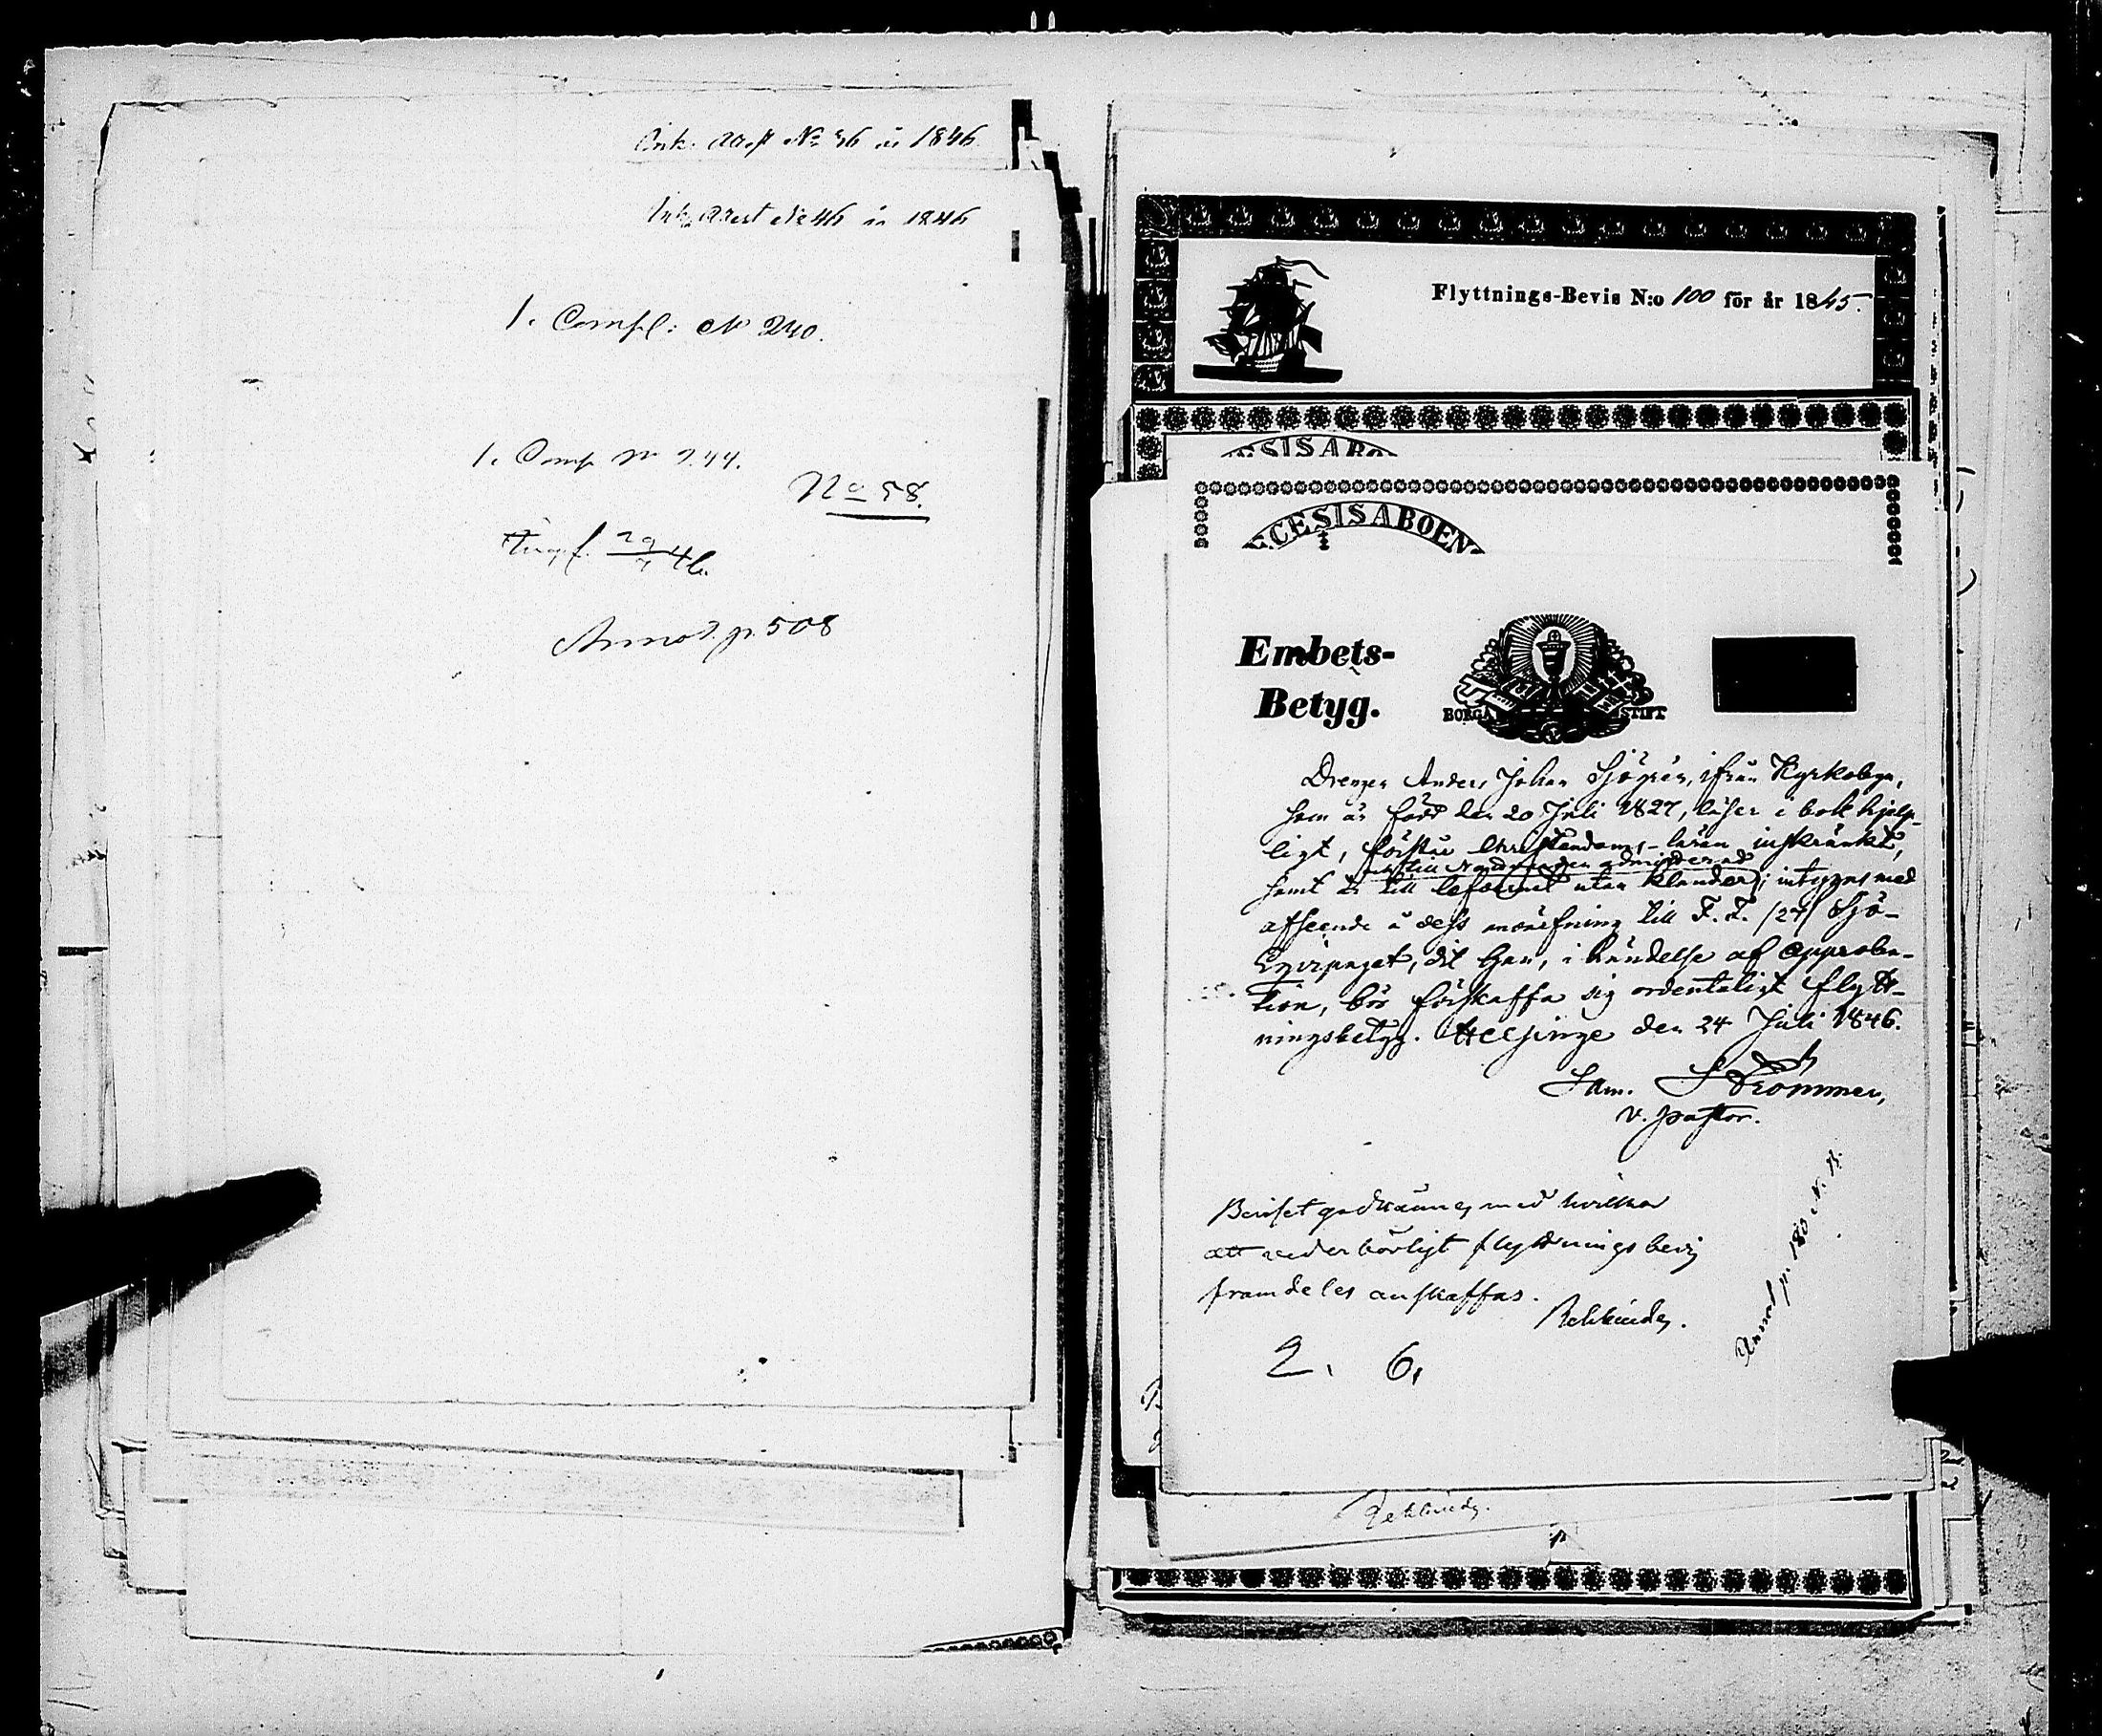 Ank. Attest No 36 år 1846.
Ank. Attest No 46 år 1846
1. Compl: No 240.
1. Comp No 244.
No 58.
46.
Annot. p. 508
Flyttnings-Bevis N:o 100 för år 1845.
CESIS ABO
ECESIS ABOEN
Embets-
Betyg.
BORGÅ STIFT
Drengen Anders Johan Sjögrén, ifrån Kyrkobyn,
som är född den 20 Juli 1827, läser i bok hjelp-
ligt, förstår Christendoms-läran inskränkt,
till Nattvarden admitterad
samt är till lefvernet utan klander; intygas med
afseende å dess anmärkning till F. F. /27/ Sjö-
Equipaget, dit Han, i händelse af approba-
tion, bör förskaffa sig ordentligt flytt-
ningsbetyg. Helsinge den 24 Juli 1846.
Sam. Strömmer,
v. pastor.
Beviset godkännes med hvilkor
att vederbörligt flyttningsbevis
framdeles anskaffas.
Rehbinder.
2. 6.
Annot. p. 180 N. 13.
Rehbinder.